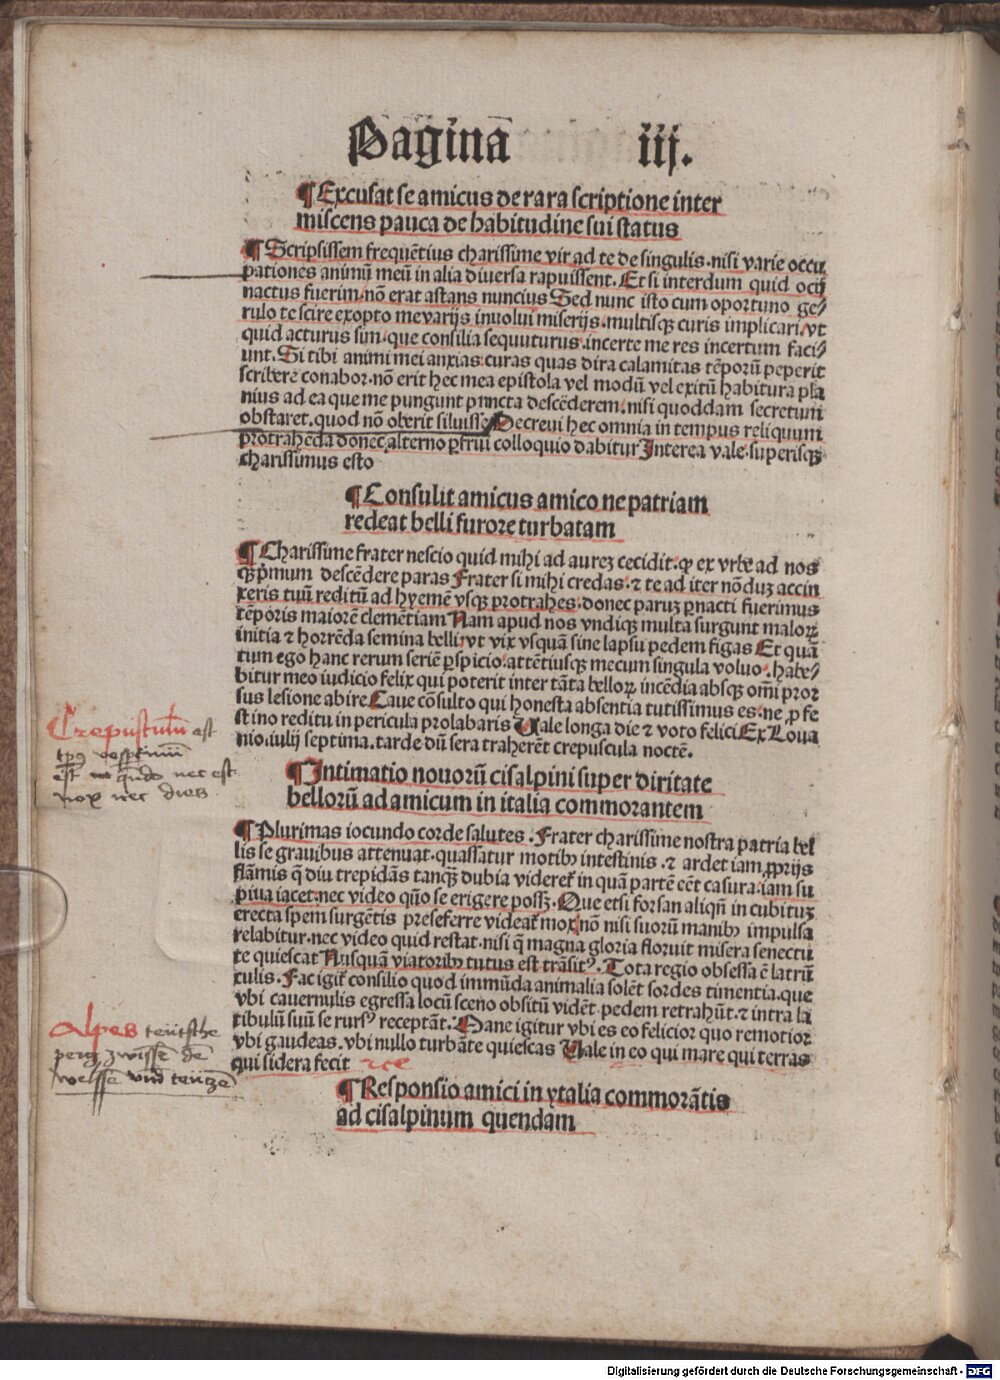 Paginā iij.
¶ Excusat se amicus de rara scriptione inter
miscens pauca de habitudine sui status
¶ Scripsissem frequētius charissime vir ad te de singulis. nisi varie occu
pationes animū meū in alia diuersa rapuissent. Et si interdum quid ocij
nactus fuerim. nō erat astans nuncius Sed nunc isto cum oportuno ge/
rulo te scire exopto me varijs inuolui miserijs. multisqꝫ curis implicari. vt
quid acturus sim. que consilia sequuturus. incerte me res incertum faci/
unt. Si tibi animi mei anxias curas quas dira calamitas tēporū peperit
scribere conabor. nō erit hec mea epistola vel modū vel exitū habitura pla
nius ad ea que me pungunt puncta descēderem. nisi quoddam secretum
obstaret. quod nō oberit siluisse Decreui hec omnia in tempus reliquum
protrahēda donec alterno ꝑfrui colloquio dabitur Interea vale. superisqꝫ
charissimus esto
¶ Consulit amicus amico ne patriam
redeat belli furore turbatam
¶ Charissime frater nescio quid mihi ad aureꝫ cecidit. ꝙ ex vrbe ad nos
qꝫpͥmum descēdere paras Frater si mihi credas. ⁊ te ad iter nōduꝫ accin
xeris tuū reditū ad hyemē vsqꝫ protrahes. donec paruꝫ ꝑnacti fuerimus
tēporis maiorē clemētiam Nam apud nos vndiqꝫ multa surgunt maloꝝ
initia ⁊ horrēda semina belli. vt vix vsquā sine lapsu pedem figas Et quā
tum ego hanc rerum seriē ꝑspicio. attētiusqꝫ mecum singula voluo. habe/
bitur meo iudicio felix qui poterit inter tāta belloꝝ incēdia absqꝫ om̄i pror
sus lesione abire Caue cōsulto qui honesta absentia tutissimus es. ne ꝓ fe
stino reditu in pericula prolabaris Vale longa die ⁊ voto felici Ex Loua
nio. iulij septima. tarde dū sera traherēt crepuscula noctē.
Crepusculū est
tp̄s vesptinū
est quādo nec est
nox nec dies
¶ Intimatio nouorū cisalpini super diritate
bellorū ad amicum in italia commorantem
¶ Plurimas iocundo corde salutes. Frater charissime nostra patria bel
lis se grauibus attenuat. quassatur motibꝰ intestinis. ⁊ ardet iam ꝓprijs
flāmis q̄ diu trepidās tanqꝫ dubia videret̄ in quā partē eēt casura. iam su
pina iacet. nec video quō se erigere possꝫ. Que etsi forsan aliqn̄ in cubituꝫ
erecta spem surgētis preseferre videat̄ mox nō nisi suorū manibꝰ impulsa
relabitur. nec video quid restat. nisi q̄ magna gloria floruit misera senectu
te quiescat Nusquā viatoribꝰ tutus est trāsitꝰ. Tota regio obsessa ē latrū
culis. Fac igit̄ consilio quod immūda animalia solēt sordes timentia. que
vbi cauernulis egressa locū sceno obsitū vidēt. pedem retrahūt. ⁊ intra la
tibulū suū se rursꝰ receptāt. Mane igitur vbi es eo felicior quo remotior
vbi gaudeas. vbi nullo turbāte quiescas Vale in eo qui mare qui terras
qui sidera fecit
Alpes teütsche
perg zwissē dē
welssē vnd teützē
¶ Responsio amici in ytalia commorātis
ad cisalpinum quendam
Digitalisierung gefördert durch die Deutsche Forschungsgemeinschaft - DFG